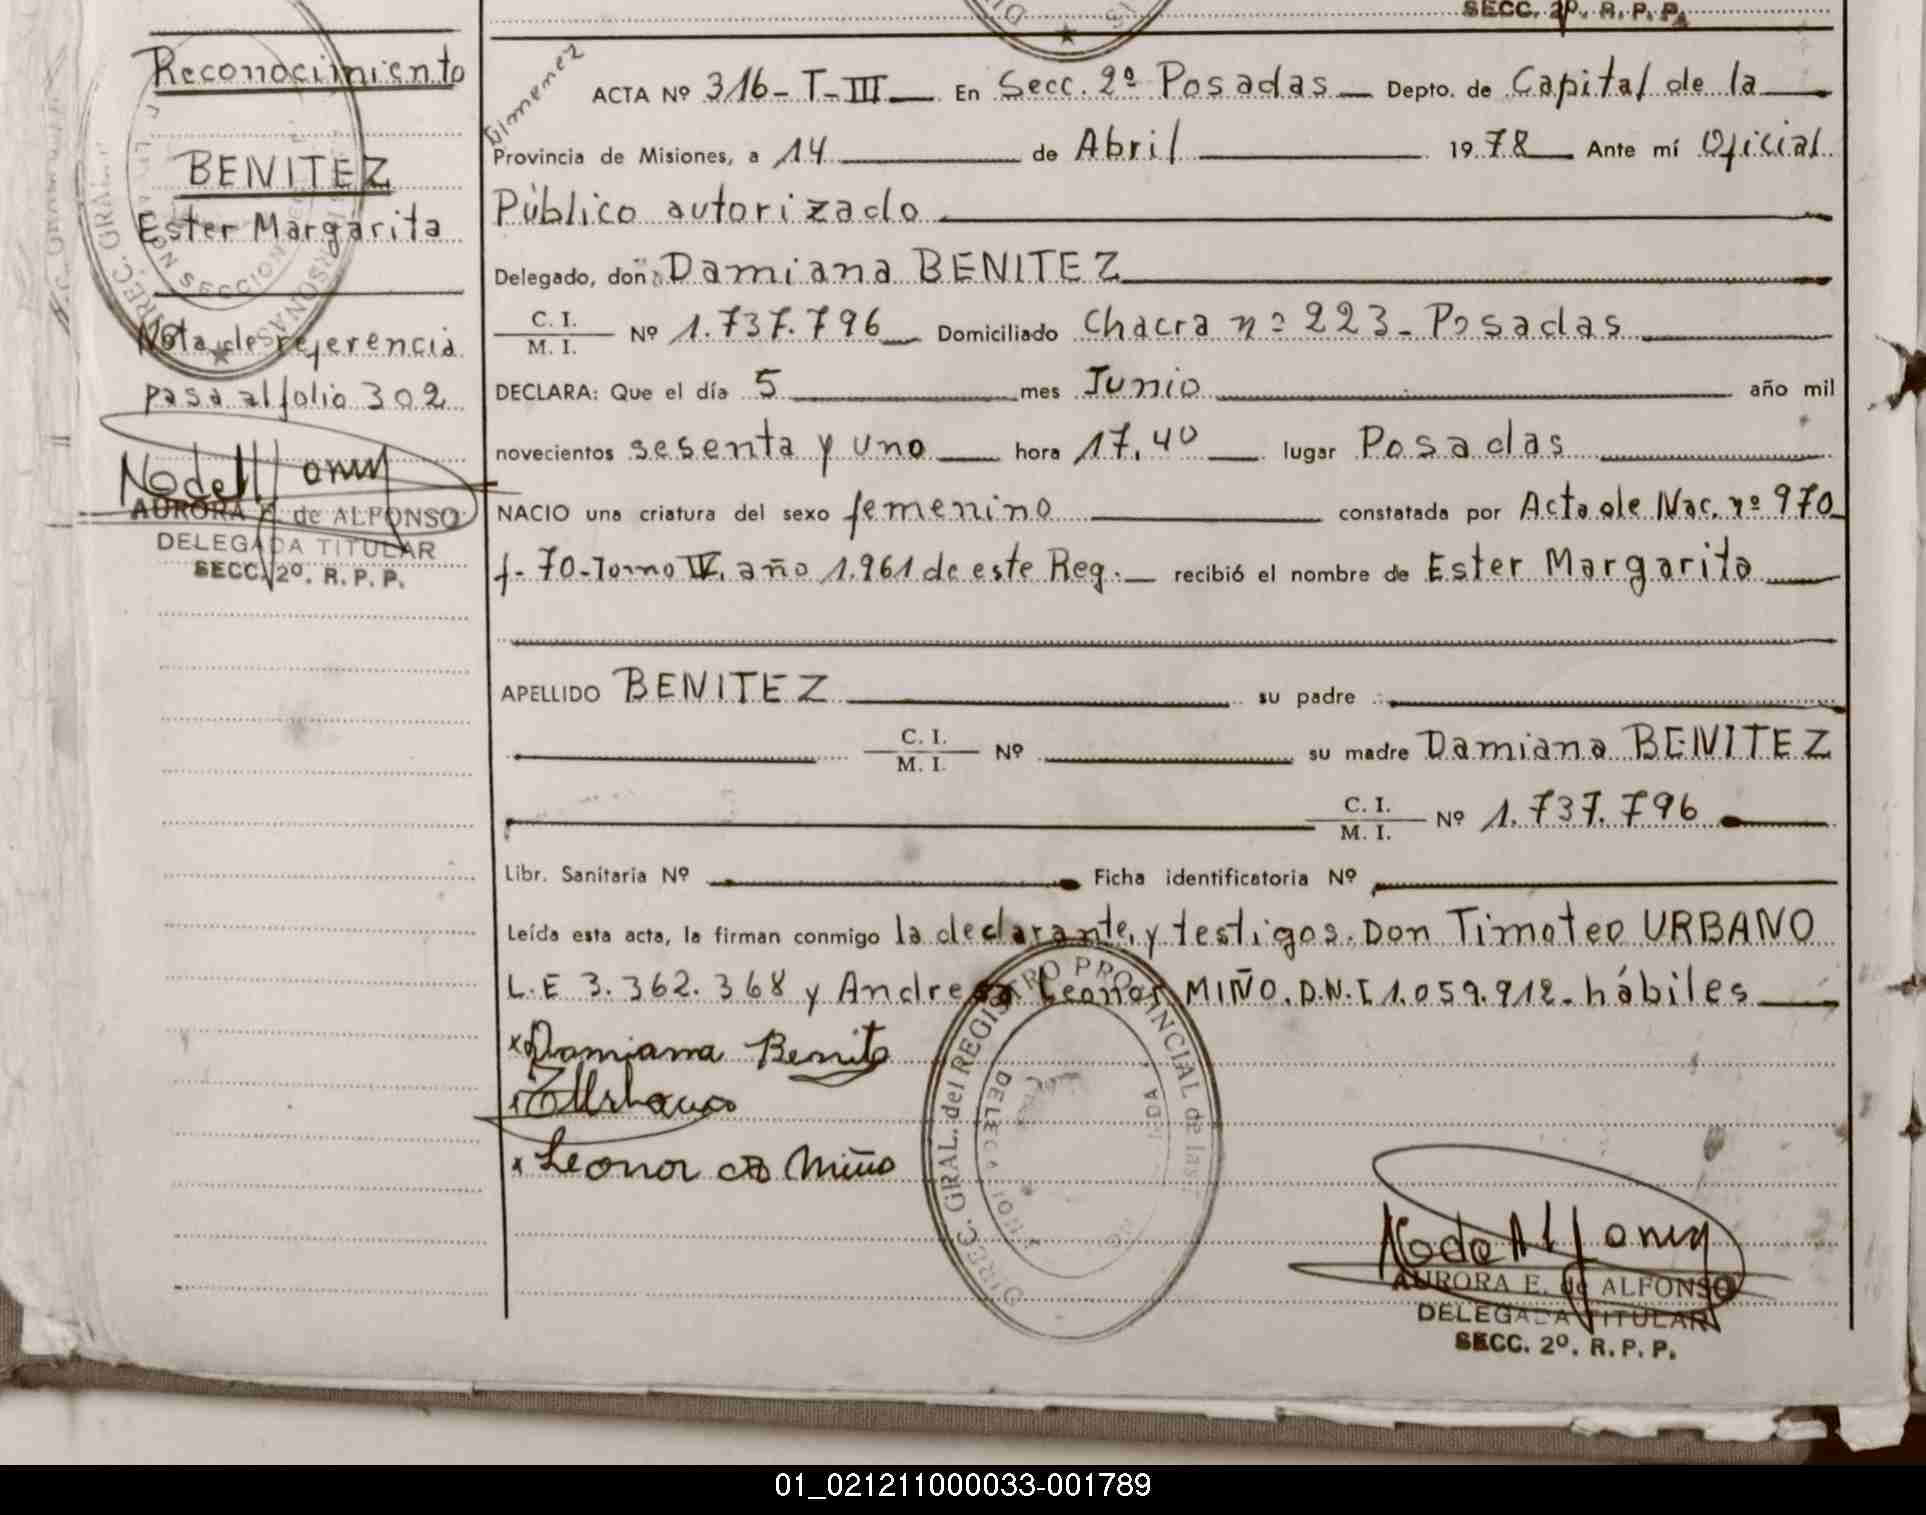 SECC. 2º. R. P. P.
Reconocimiento
BENITEZ
Ester Margarita
Nota de referencia
pasa al folio 302
AURORA E. de ALFONSO
DELEGADA TITULAR
SECC. 2º. R. P. P.
Gimenez
ACTA Nº 316-T-III En Secc. 2ª Posadas Depto. de Capital de la
Provincia de Misiones, a 14 de Abril 1978 Ante mí Oficial
Público autorizado
Delegado, doña Damiana BENITEZ
C. I. / M. I. Nº 1.737.796 Domiciliado Chacra nº 223-Posadas
DECLARA: Que el día 5 mes Junio año mil
novecientos sesenta y uno hora 17,40 lugar Posadas
NACIO una criatura del sexo femenino constatada por Acta de Nac. nº 970
f-70-Tomo IV. año 1.961 de este Reg. recibió el nombre de Ester Margarita
APELLIDO BENITEZ su padre
C. I. / M. I. Nº su madre Damiana BENITEZ
C. I. / M. I. Nº 1.737.796
Libr. Sanitaria Nº Ficha identificatoria Nº
Leída esta acta, la firman conmigo la declarante, y testigos. Don Timoteo URBANO
L.E 3.362.368 y Andrea Leonor MIÑO. D.N.I 1.059.912. hábiles
x Damiana Benite
Leonor de Miño
DIREC. GRAL. del REGISTRO PROVINCIAL de las
AURORA E. de ALFONSO
DELEGADA TITULAR
SECC. 2º. R. P. P.
01_021211000033-001789